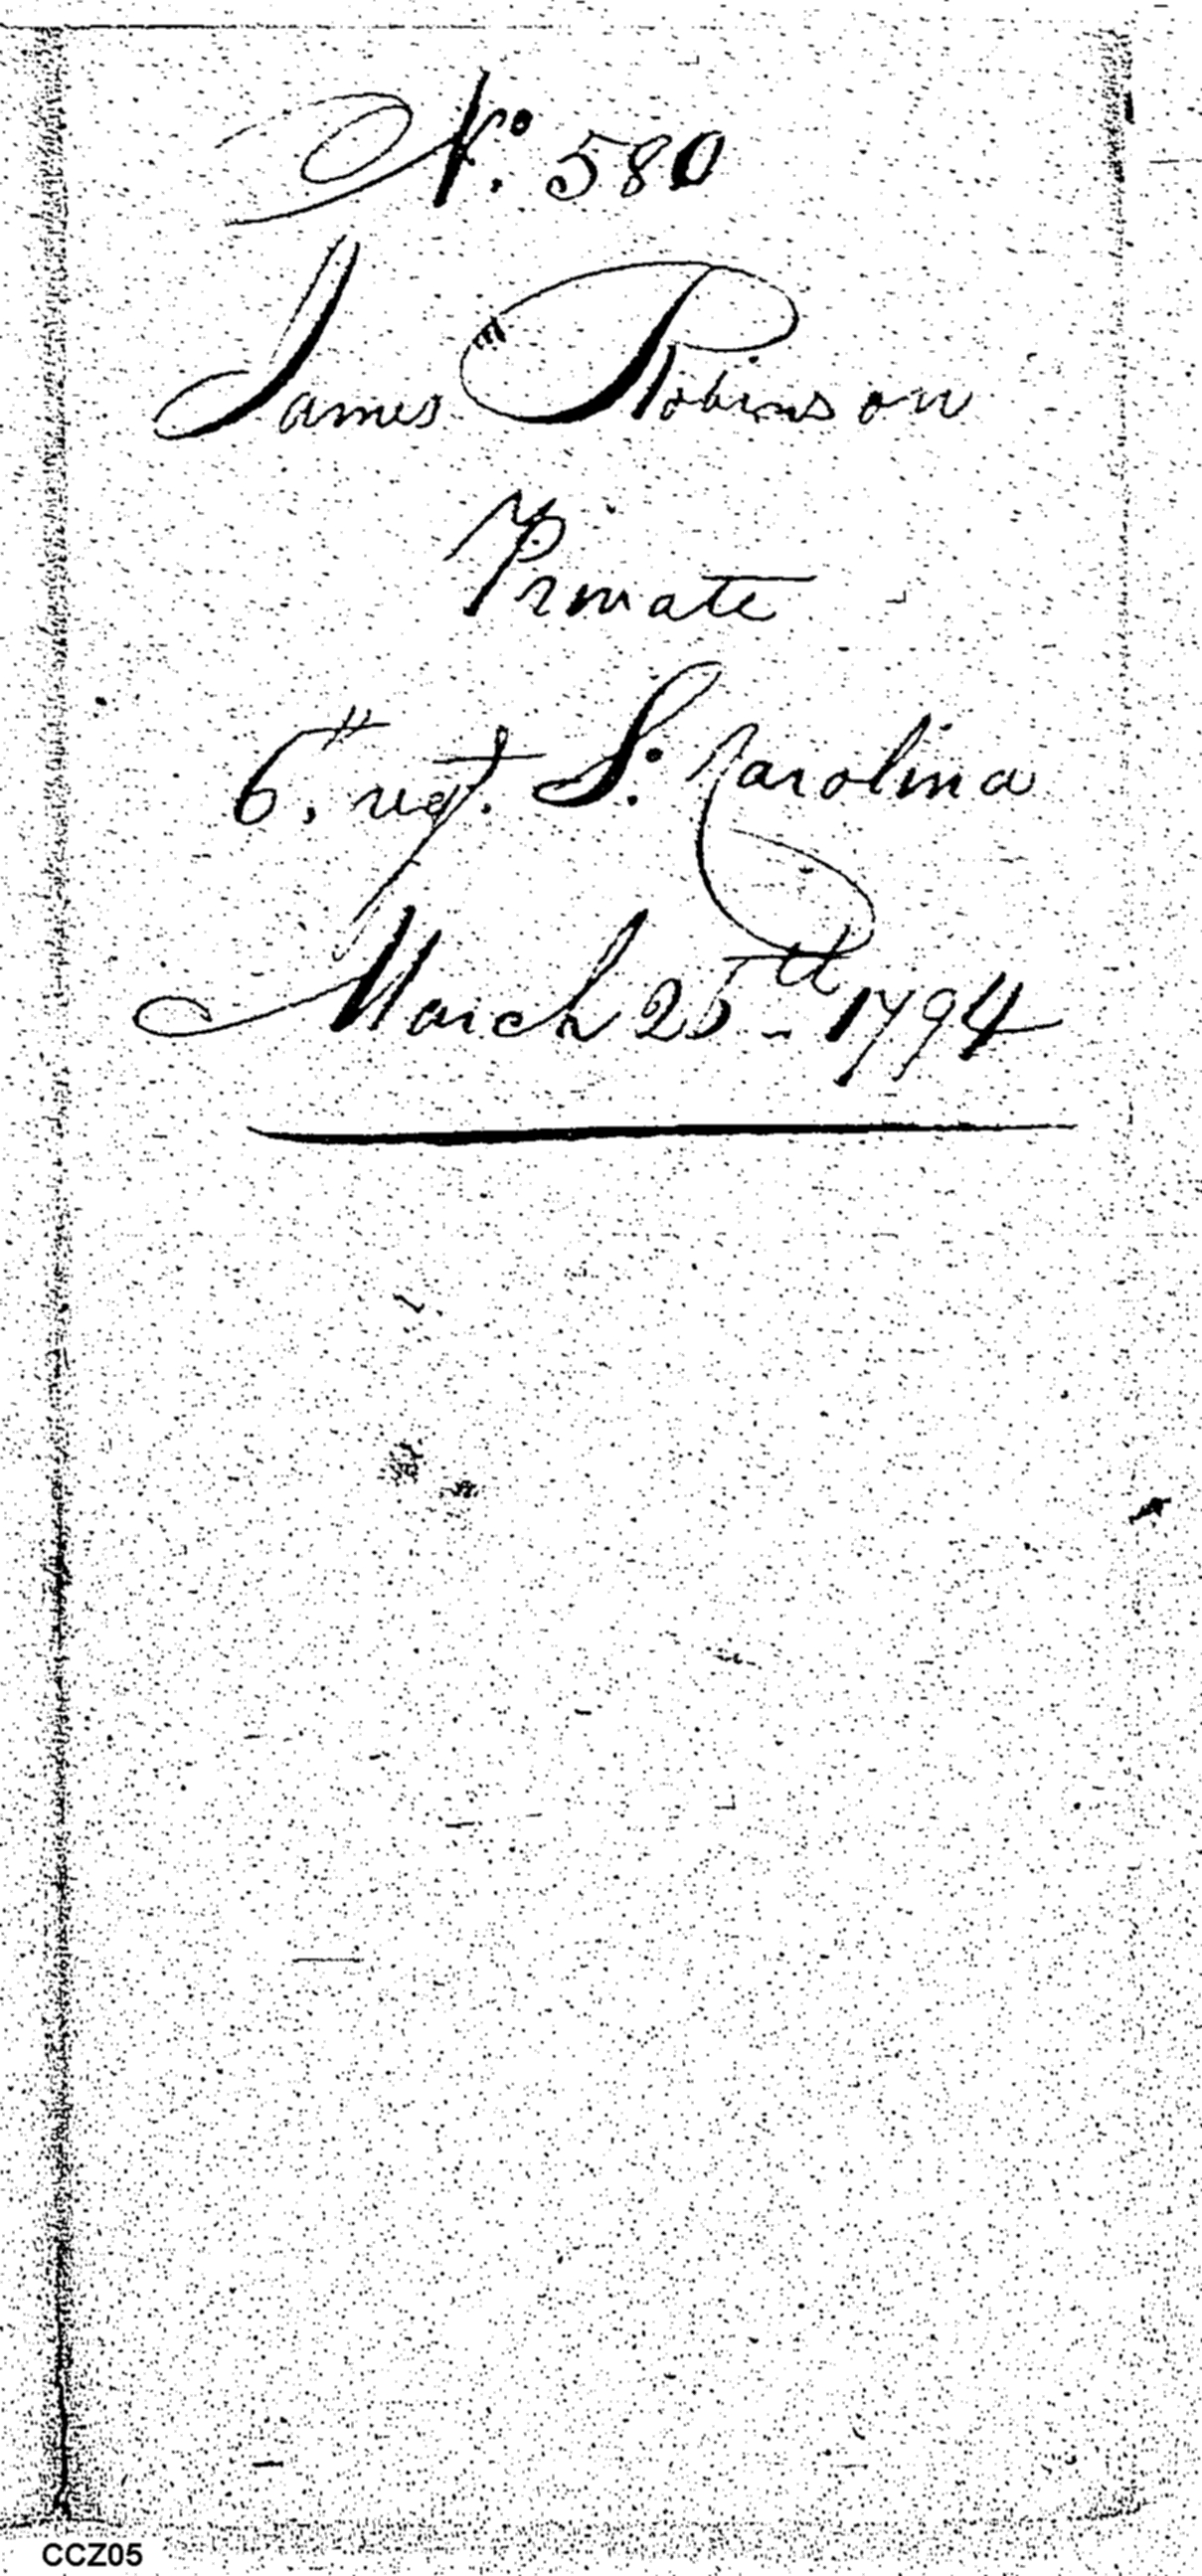 No. 580
James Robinson
Private
6th. regt. S. Carolina
March 25th - 1794
CCZ05